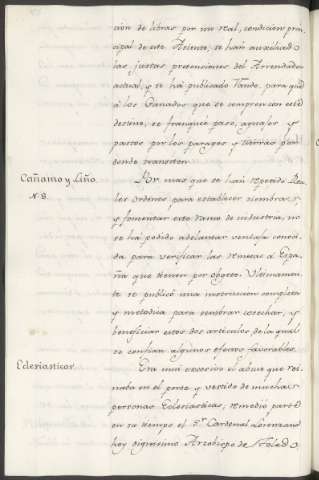 cion de libras por un real, condicion prin-
cipal de este Asiento, se han auxiliado
las justas pretensiones del Arrendador
actual, y se há publicado Vando, para que
à los Ganados que se compren con este
destino, se franqueè paso, aguajes y
pastos por los parages y tierras por
donde transiten.
Cañamo y Lino.
N. 8.
Por mas que se han repetido Rea-
les ordenes para establecer siembras,
y fomentar este ramo de industria, no
se há podido adelantar ventaja conoci-
da para verificar las remesas à Espa-
ña que tienen por objeto. Ultimamen-
te se publicò una instruccion completa
y metodica para sembrar, cosechar, y
beneficiar estos dos articulos de la qual
se confian algunos efectos favorables.
Eclesiasticos.
Era mui excesivo el abuso que rei-
naba en el porte y vestido de muchas
personas Eclesiasticas, remediò parte
en su tiempo el Sr. Cardenal Lorenzana
hoy dignisimo Arzobispo de Toledo